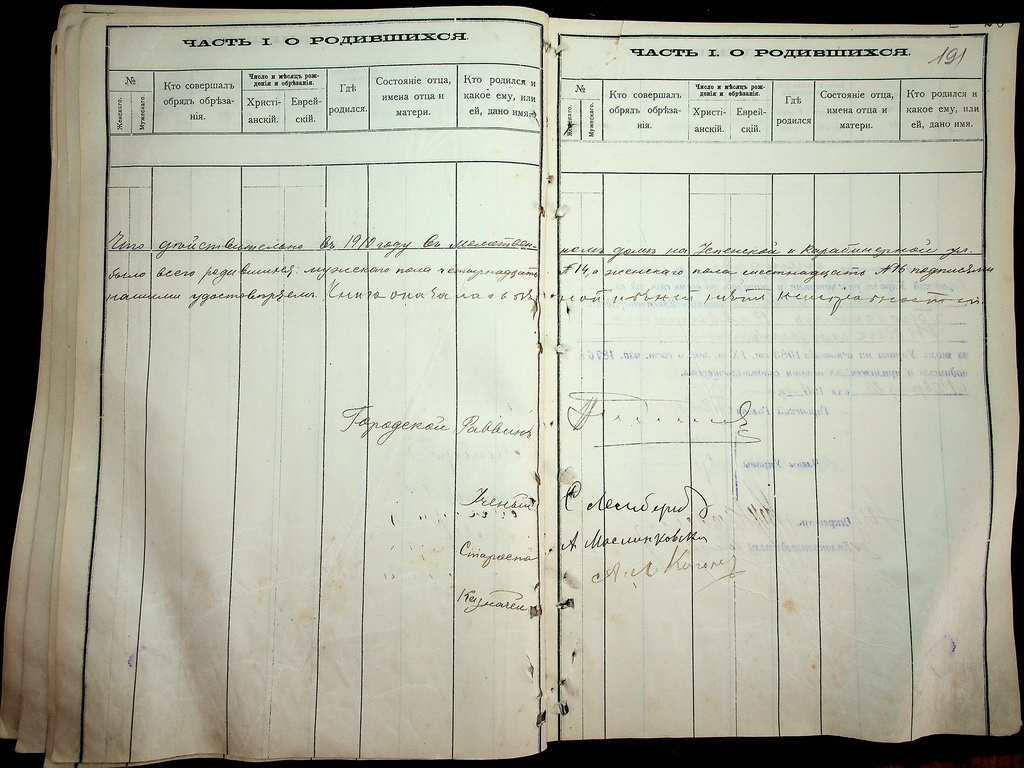 ЧАСТЬ I. О РОДИВШИХСЯ.
№
Женскаго.
Мужескаго.
Кто совершалъ обрядъ обрѣзанія.
Число и мѣсяцъ рожденія и обрѣзанія.
Христіанскій.
Еврейскій.
Гдѣ родился.
Состояніе отца, имена отца и матери.
Кто родился и какое ему, или ей, дано имя.
ЧАСТЬ I. О РОДИВШИХСЯ.
191
№
Женскаго.
Мужескаго.
Кто совершалъ обрядъ обрѣзанія.
Число и мѣсяцъ рожденія и обрѣзанія.
Христіанскій.
Еврейскій.
Гдѣ родился
Состояніе отца, имена отца и матери.
Кто родился и какое ему, или ей, дано имя.
Что дѣйствительно въ 1910 году въ молитвенномъ домѣ на Успенской и Карабинерной ул.
было всего родившихся: мужскаго пола четырнадцать №14, а женскаго пола шестнадцать №16 подписями
нашими удостовѣряемъ. Книга
Городской Раввинъ
Ученый
Староста
Казначей